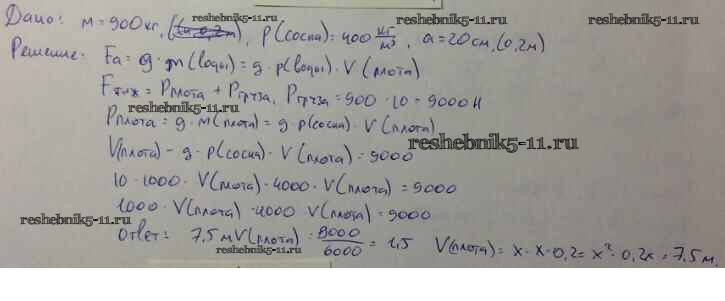 Дано: m = 900 кг, (a=0,2м), ρ(сосна) = 400 кг/м³, a = 20 см, (0,2м)
reshebnik5-11.ru
reshebnik5-11.ru
Решение: Fa = g · m(воды) = g · ρ(воды) · V(плота)
Fтяж = Pплота + Pгруза, Pгруза = 900 · 10 = 9000 Н
reshebnik5-11.ru
Pплота = g · m(плота) = g · ρ(сосна) · V(плота)
reshebnik5-11.ru
V(плота) - g · ρ(сосна) · V(плота) = 9000
10 · 1000 · V(плота) - 4000 · V(плота) = 9000
1000 · V(плота) - 4000 · V(плота) = 9000
reshebnik5-11.ru
reshebnik5-11.ru
Ответ: 7.5 м V(плота) = 9000/6000 = 1,5 V(плота) = x · x · 0,2 = x² · 0,2x = 7.5 м.